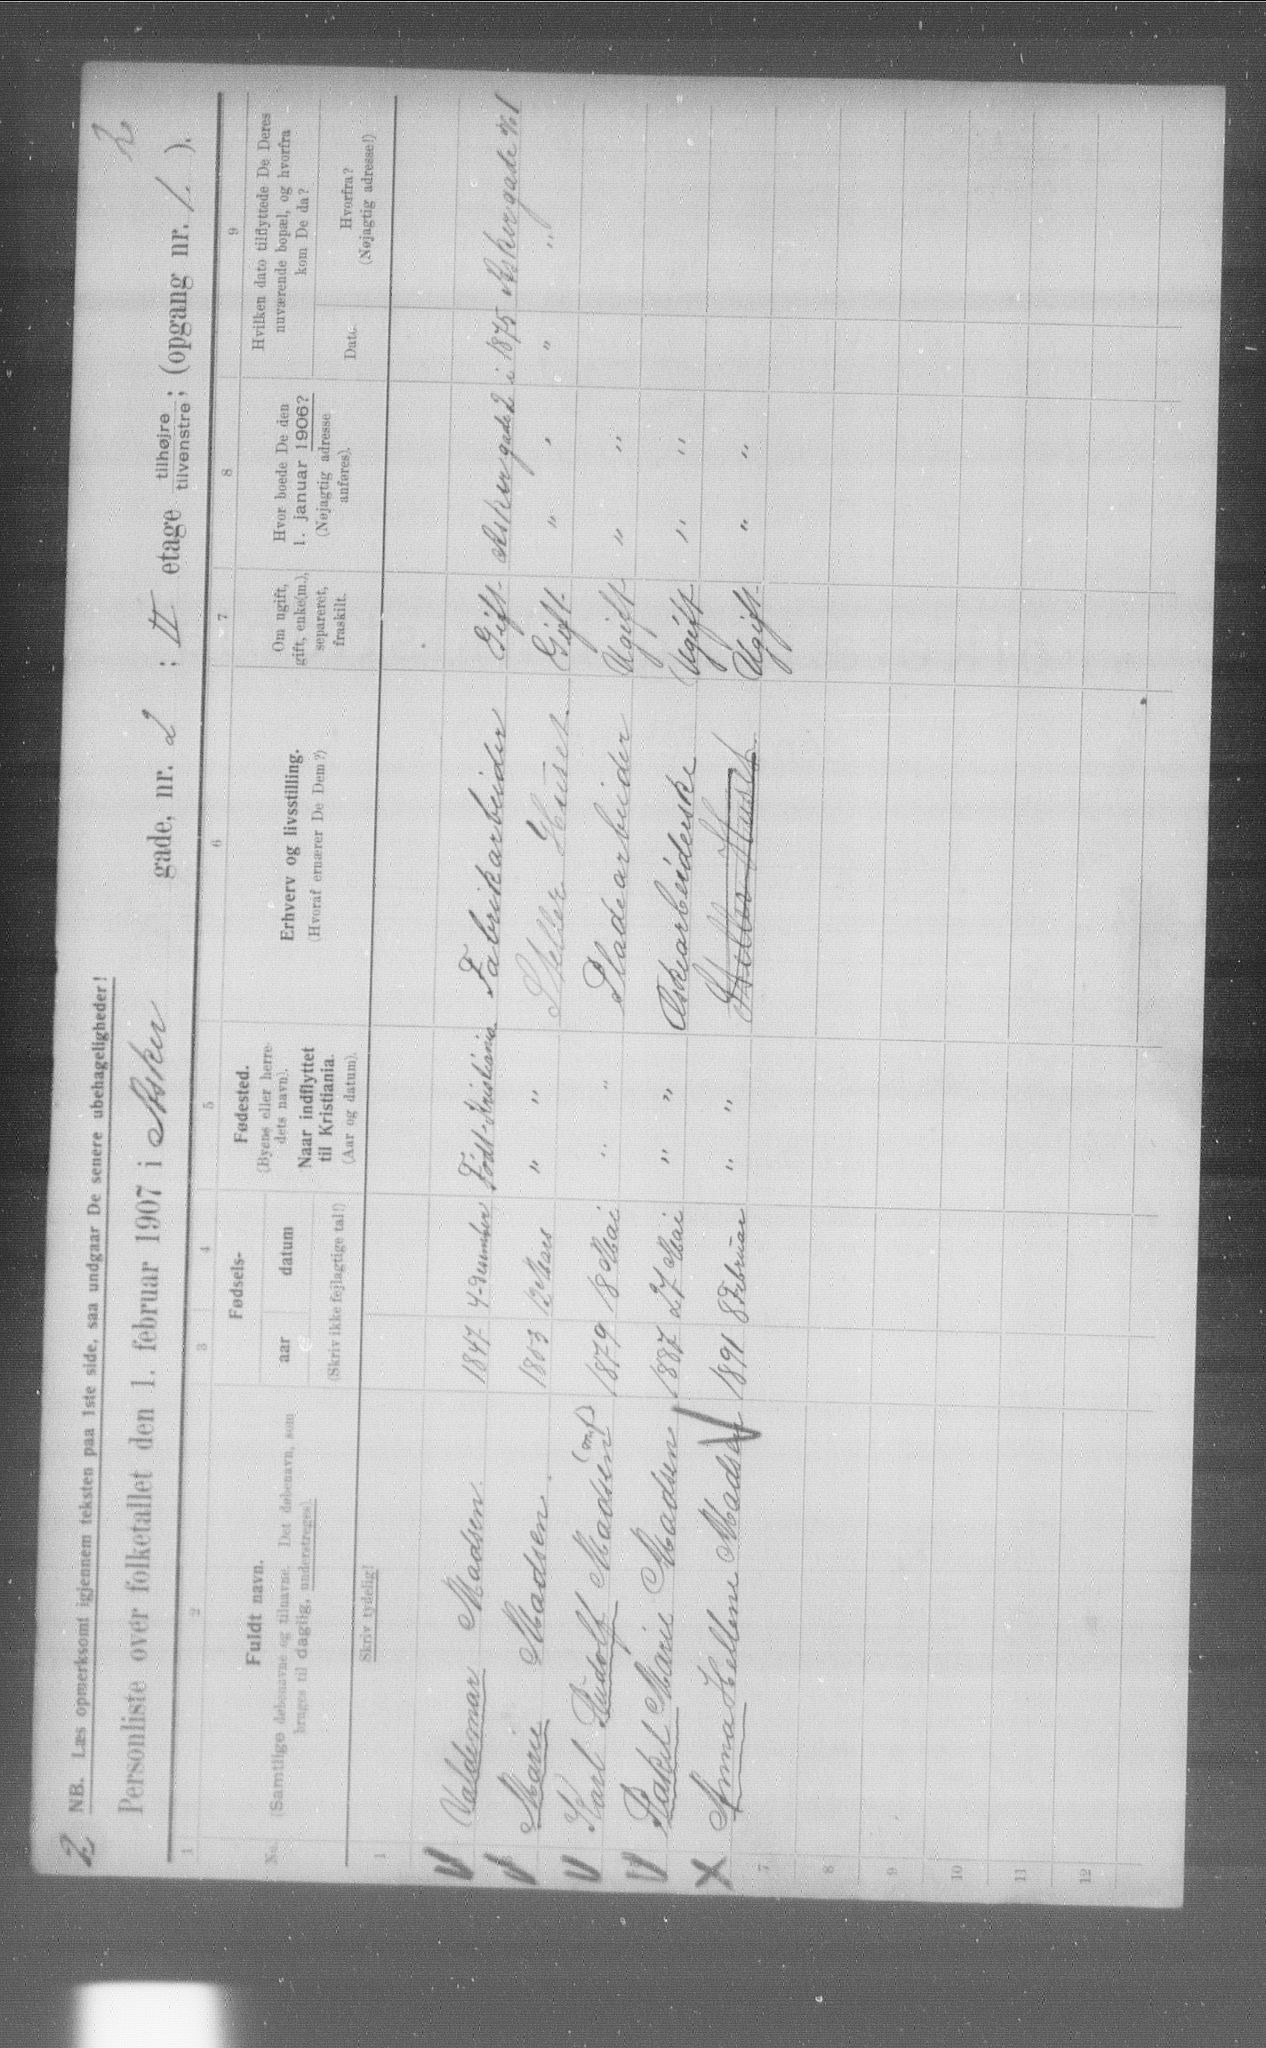 2 NB. Læs opmerksomt igjennem teksten paa 1ste side, saa undgaar De senere ubehageligheder!
2
Personliste over folketallet den 1. februar 1907 i Asker gade, nr. 2 ; II etage tilhøjre tilvenstre; (opgang nr. 1. ).
1 2 3 4 5 6 7 8 9
No.
Fuldt navn.
(Samtlige døbenavne og tilnavne. Det døbenavn, som
bruges til daglig, understreges).
Skriv tydelig!
Fødsels-
aar datum
(Skriv ikke fejlagtige tal!)
Fødested.
(Byens eller herre-
dets navn).
Naar indflyttet
til Kristiania.
(Aar og datum).
Erhverv og livsstilling.
(Hvoraf ernærer De Dem?)
Om ugift,
gift, enke(m.),
separeret,
fraskilt.
Hvor boede De den
1. januar 1906?
(Nøjagtig adresse
anføres).
Hvilken dato tilflyttede De Deres
nuværende bopæl, og hvorfra
kom De da?
Dato.
Hvorfra?
(Nøjagtig adresse!)
1
Valdemar Madsen 1847 4-desember Födt-Kristiania Fabrikarbeider Gift. Askergade 2 i 1875 Askergade № 1
Marie Madsen. 1853 12 Mars " " Steller Huset. Gift. " " " "
Karl Rudolf Madsen 1879 18 Mai " " Pladearbeider Ugift " "
Rakel Marie Madsen 1887 27 Mai " " Æskearbeiderske Ugift " "
Anna Hellene Madsen 1891 8 Februar " " Steller Huset Ugift. " "
7
8
9
10
11
12